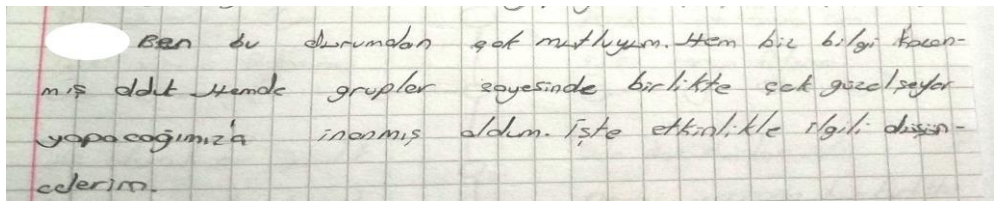 Ben bu durumdan çok mutluyum. Hem biz bilgi kazan-
mış olduk Hemde gruplar sayesinde birlikte çok güzel şeyler
yapacağımız'a inanmış oldum. İşte etkinlikle ilgili düşün-
celerim.